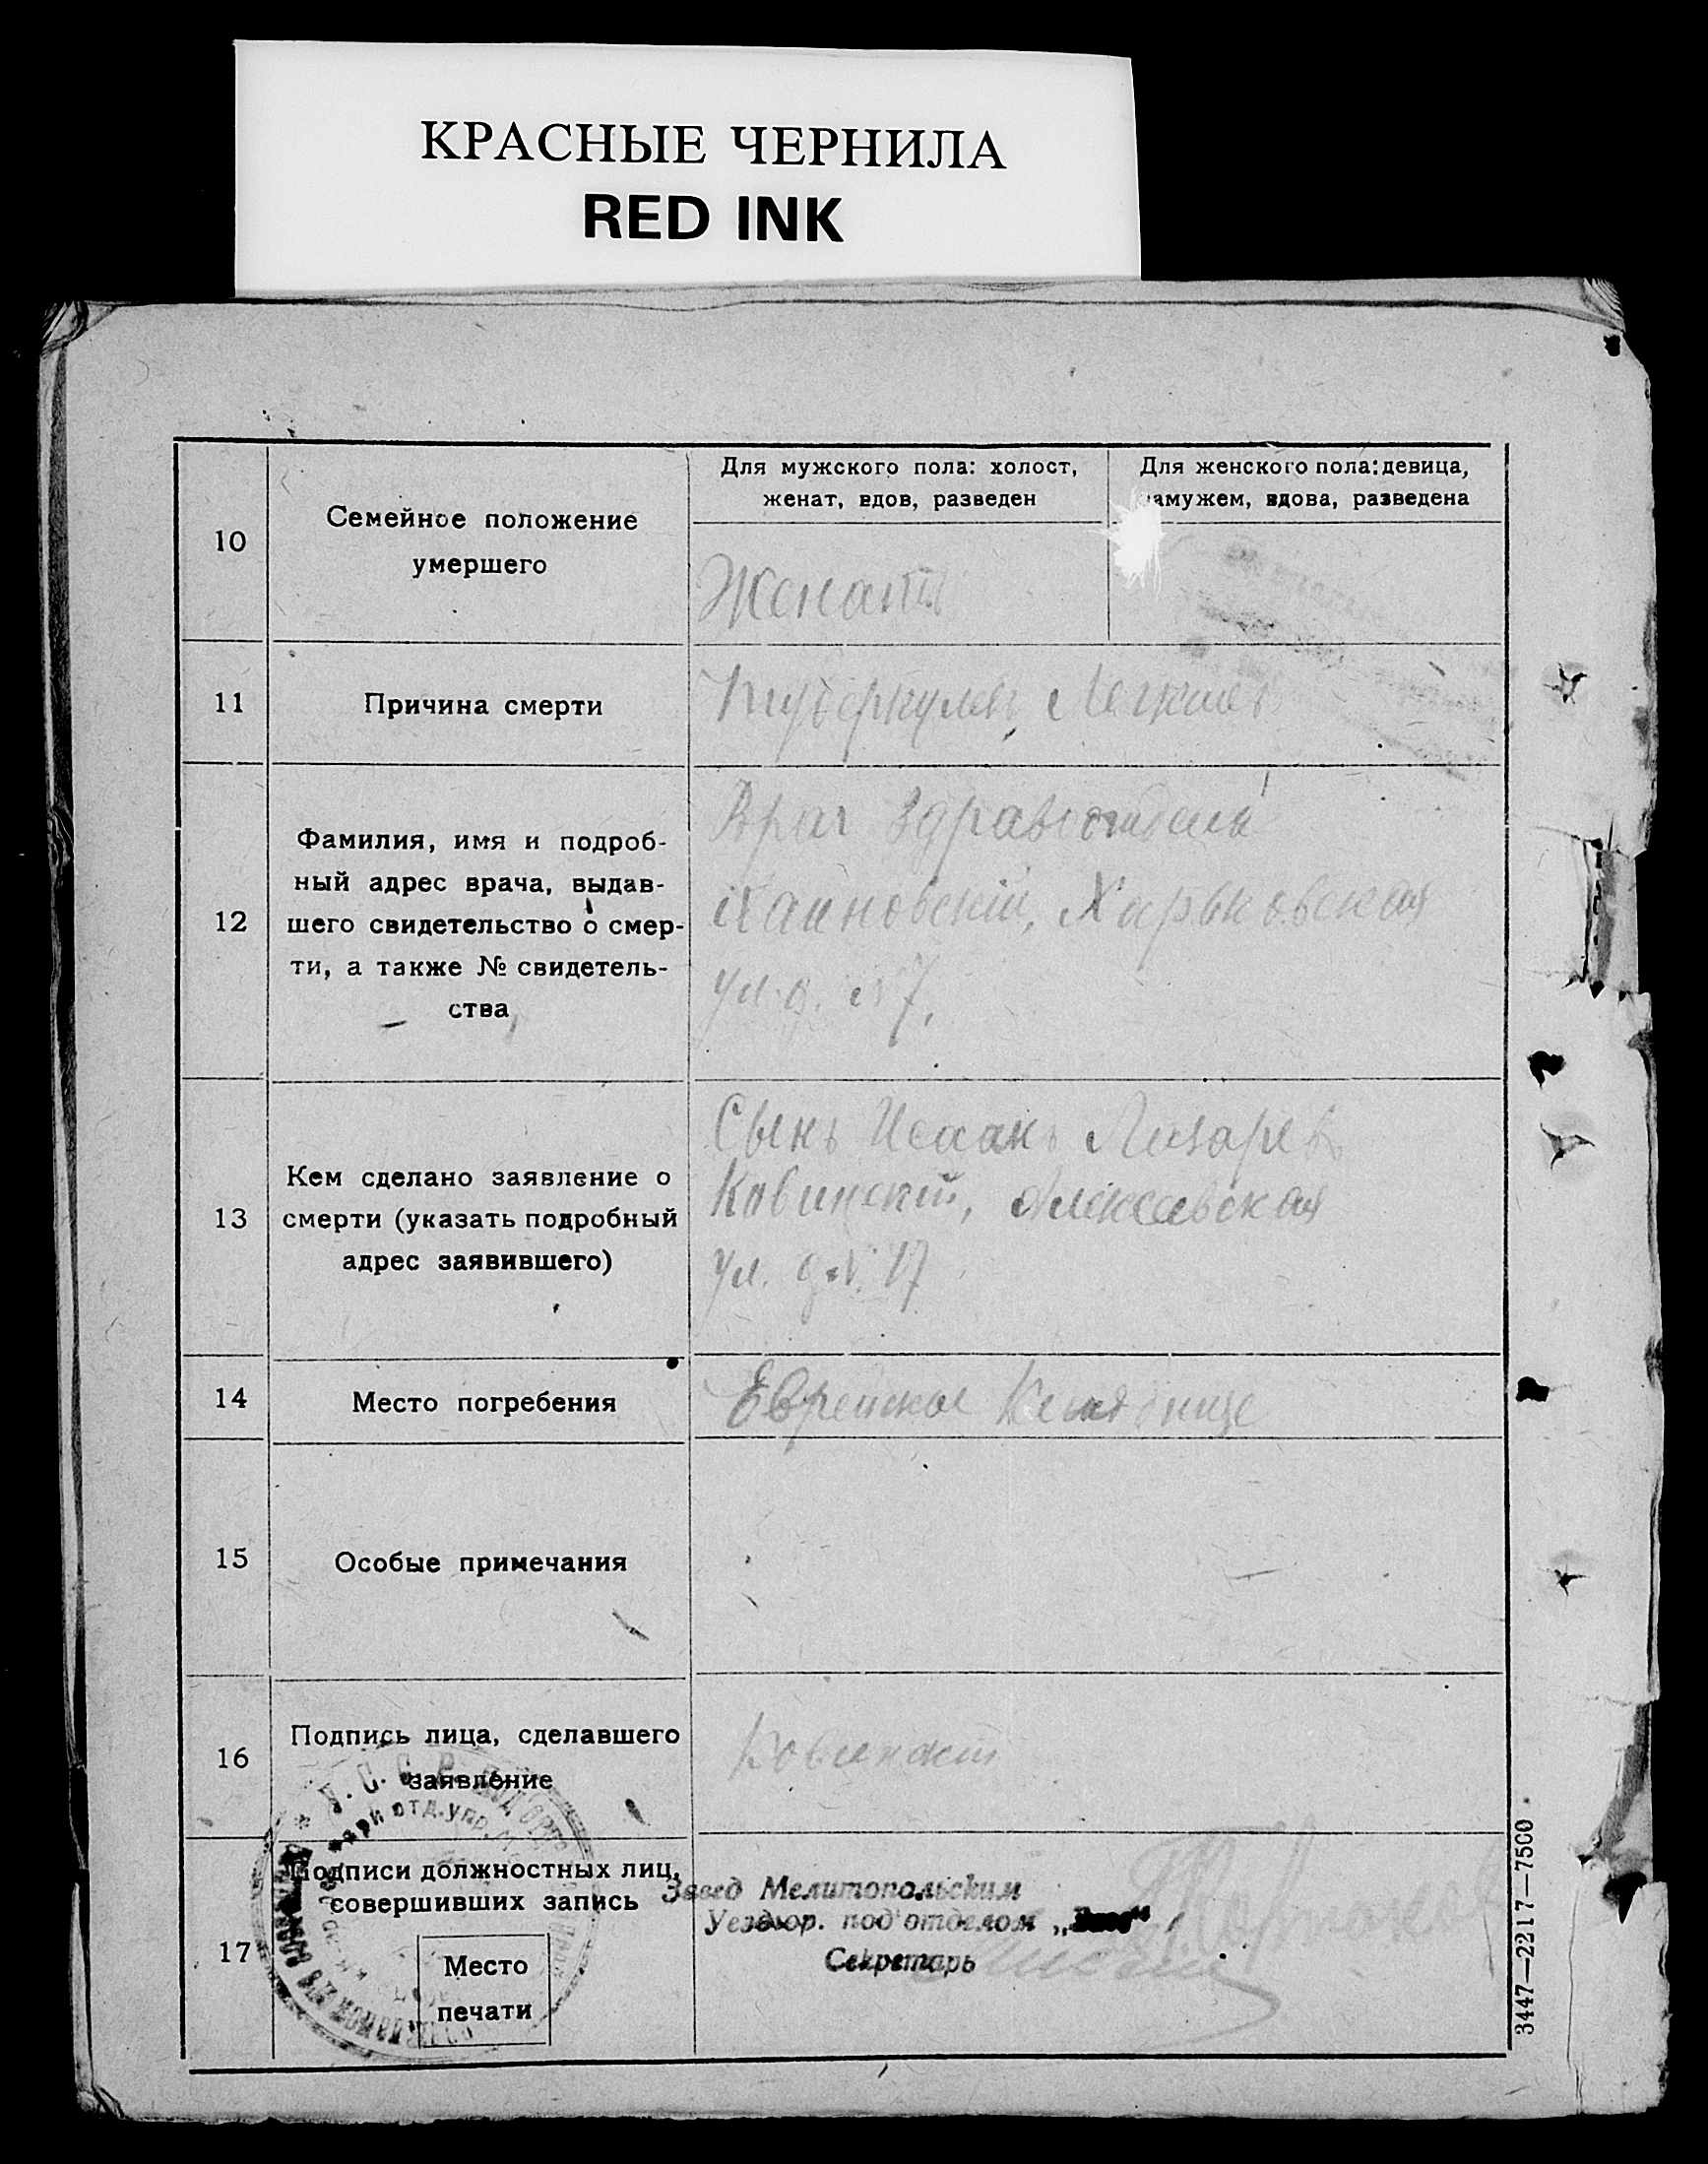 КРАСНЫЕ ЧЕРНИЛА
RED INK
10
Семейное положение
умершего
Для мужского пола: холост,
женат, вдов, разведен
Для женского пола: девица,
замужем, вдова, разведена
Женатъ
11
Причина смерти
Туберкулезъ Легкихъ
12
Фамилия, имя и подроб-
ный адрес врача, выдав-
шего свидетельство о смер-
ти, а также № свидетель-
ства
Врач
Харьковская
ул. д. №7.
13
Кем сделано заявление о
смерти (указать подробный
адрес заявившего)
Сынъ Исаакъ Лазарев
Ковинский,
ул. д. №. 17
14
Место погребения
Еврейское Кладбище
15
Особые примечания
16
Подпись лица, сделавшего
заявление
Ковинский
17
Подписи должностных лиц,
совершивших запись
Место
печати
Завед Мелитопольским
Уездюр. под'отделом
Секретарь
3447—2217—7500